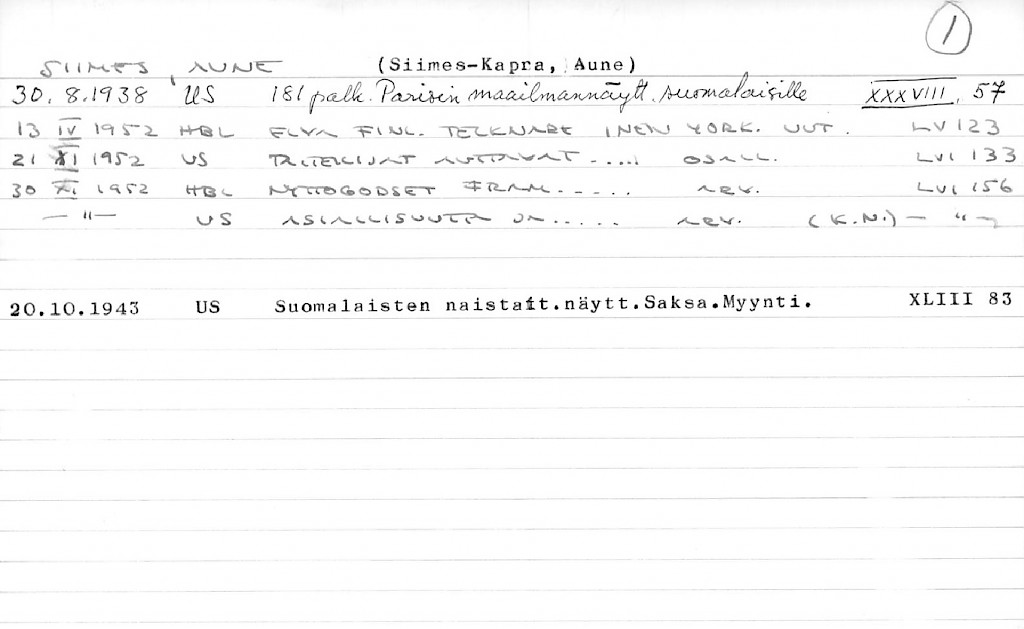 1
SIIMES, AUNE (Siimes-Kapra, Aune)
30.8.1938 US 181 palk. Parisin maailmannäytt. suomalaisille XXXVIII, 57
13 IV 1952 HBL ELVA FINL. TECKNARE I NEW YORK. UUT. LV 123
21 XI 1952 US TAITEILIJAT AUTTAVAT..... OSALL. LVI 133
30 XI 1952 HBL NYTTOGODSET FRAM..... ARV. LVI 156
— " — US ASIALLISUUTTA ON..... ARV. (K.N.) — " —
20.10.1943 US Suomalaisten naistait.näytt.Saksa.Myynti. XLIII 83